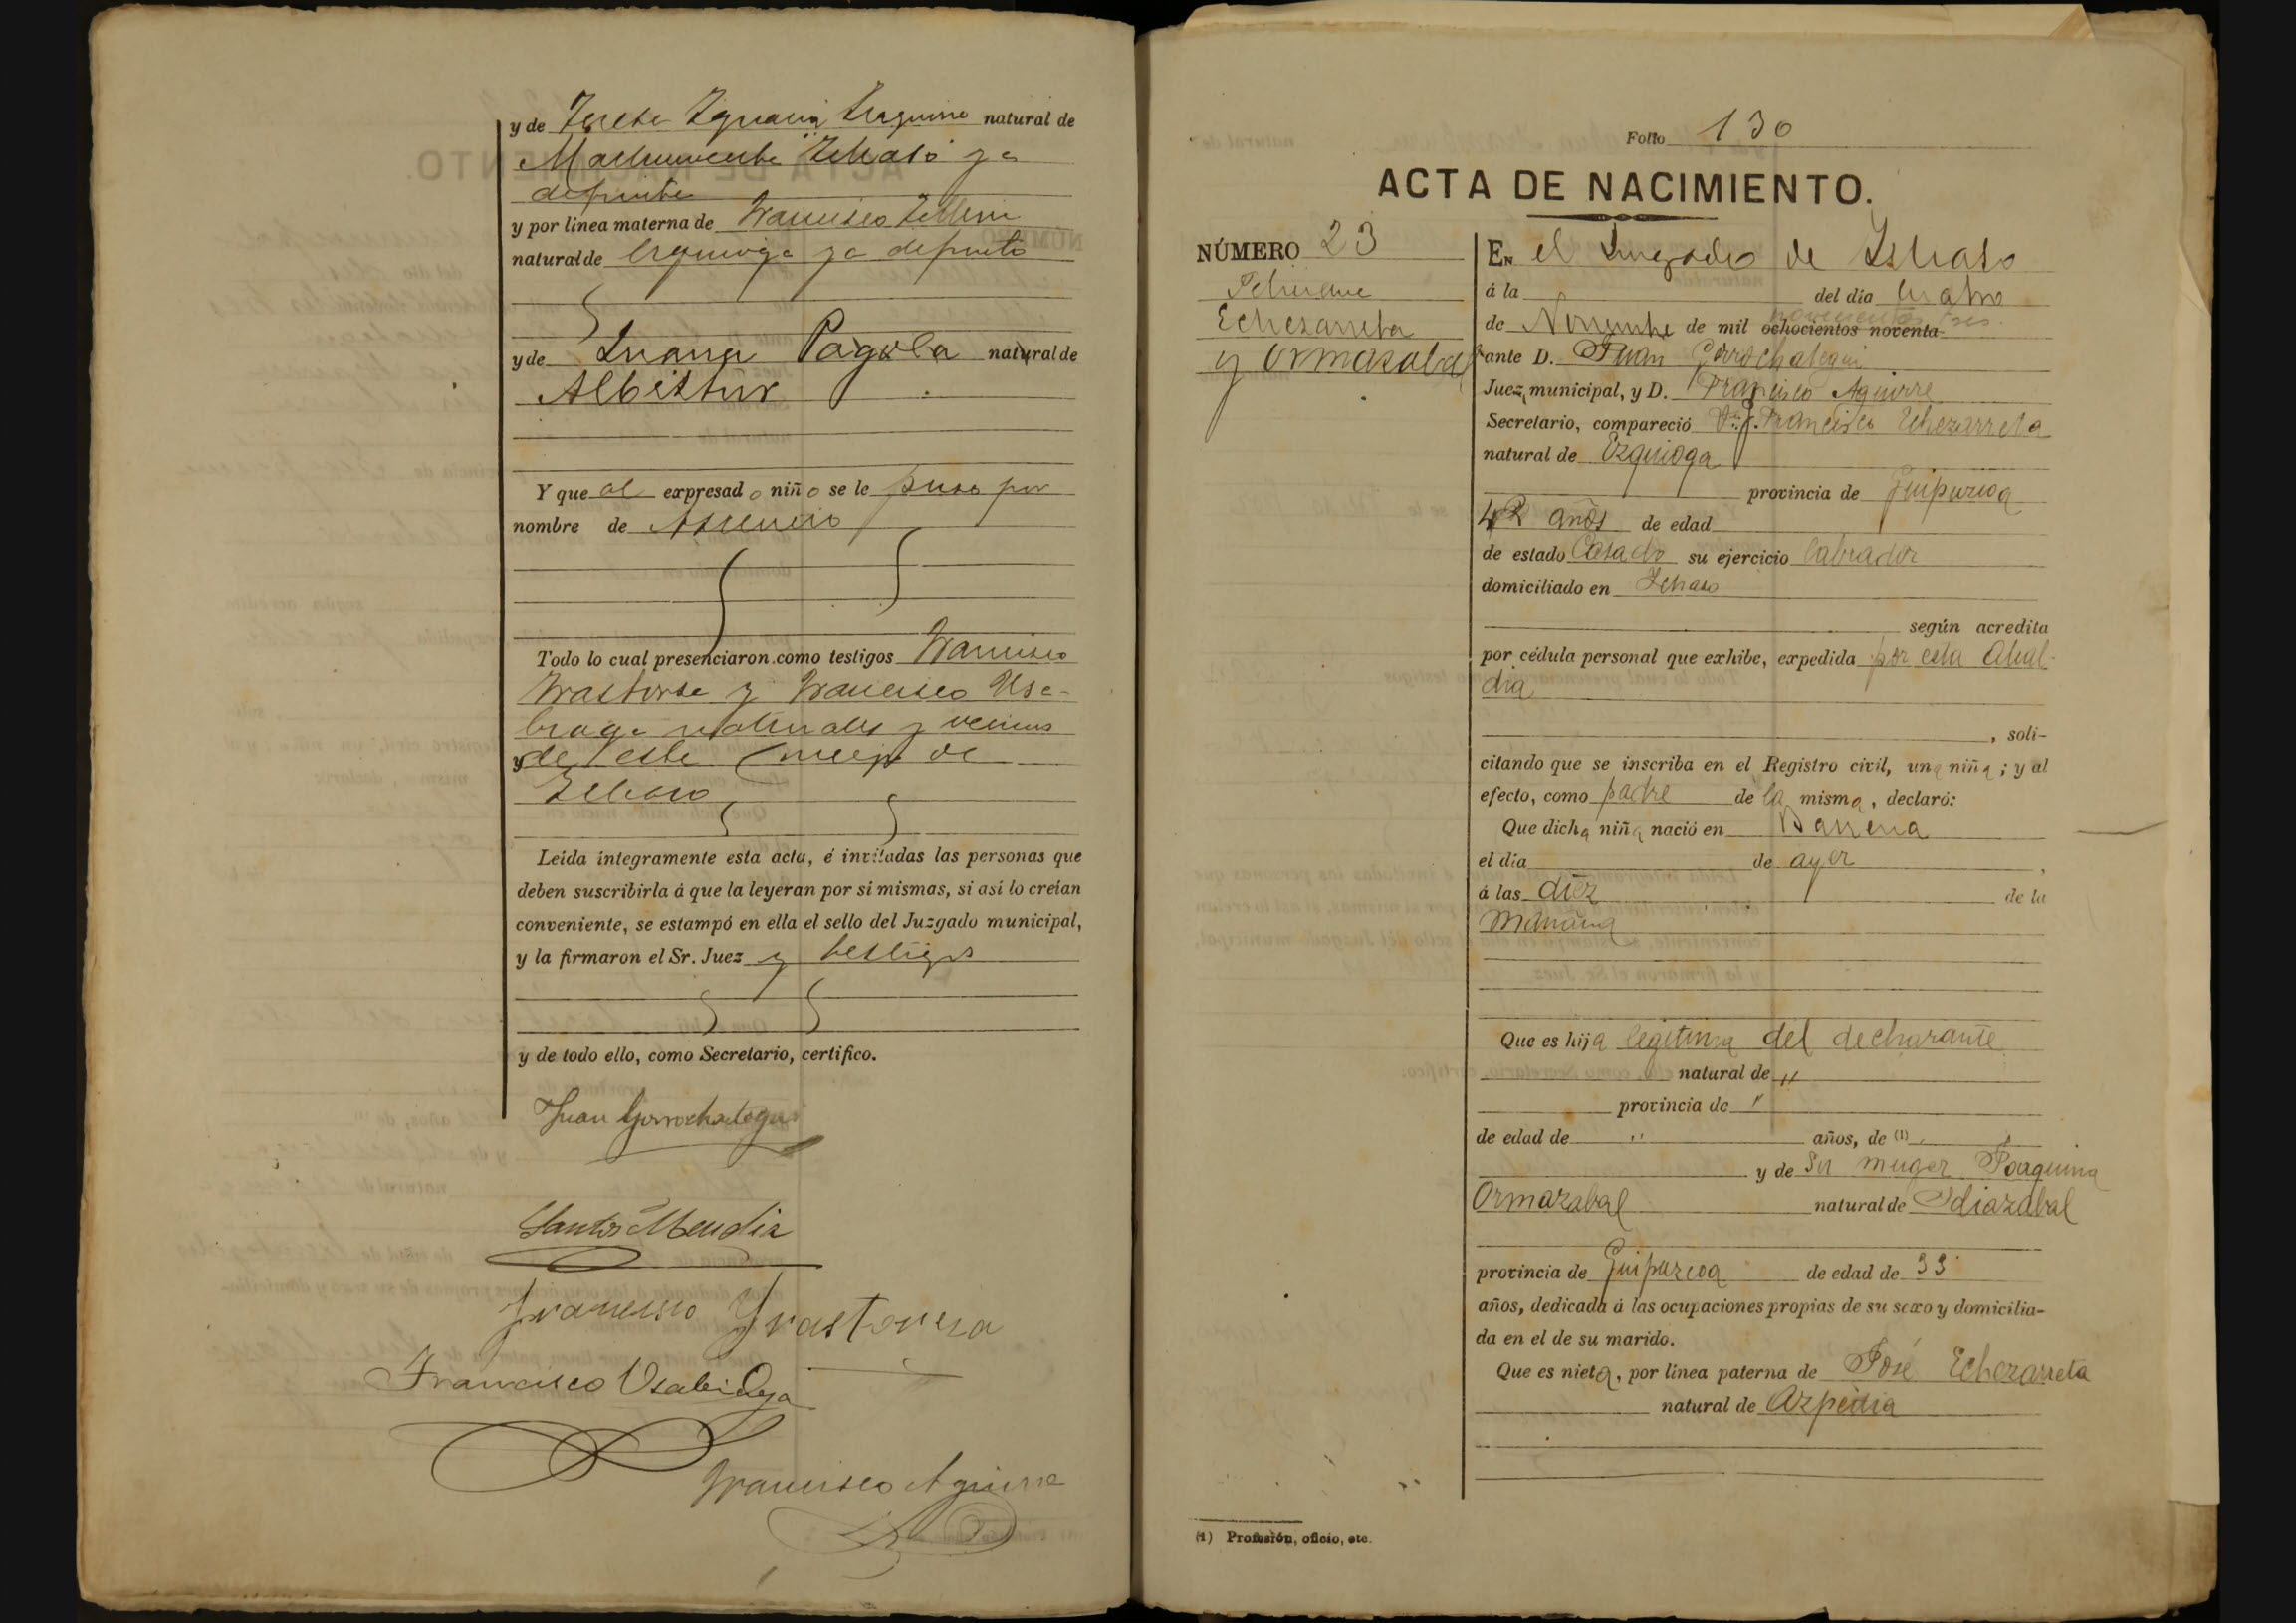 y de Ignacia natural de
ya
defunta
y por linea materna de Francisco
natural de Ezquioga ya defunto
y de Juana Pagola natural de
Albistur
Y que al expresado niño se le puso por
nombre de
Todo lo cual presenciaron como testigos Francisco
y Francisco Usa-
biaga naturales y vecinos
de este de
Ichaso
Leída íntegramente esta acta, é invitadas las personas que
deben suscribirla á que la leyeran por sí mismas, si así lo creían
conveniente, se estampó en ella el sello del Juzgado municipal,
y la firmaron el Sr. Juez y testigos
y de todo ello, como Secretario, certifico.
Juan Gorrochategui
Santos Mendia
Francisco Irastorza
Francisco Usabiaga
Francisco Aguirre
Folio 130
ACTA DE NACIMIENTO.
NÚMERO 23
Echezarreta
y Ormazabal
En el Juzgado de Ichaso
á la del día Cuatro
novecientos tres
de Noviembre de mil ochocientos noventa
ante D. Juan Gorrochategui
Juez municipal, y D. Francisco Aguirre
Secretario, compareció Francisco Echezarreta
natural de Ezquioga
provincia de Guipuzcoa
42 años de edad
de estado Casado su ejercicio labrador
domiciliado en Ichaso
según acredita
por cédula personal que exhibe, expedida por esta Alcal-
dia
, soli-
citando que se inscriba en el Registro civil, una niña; y al
efecto, como padre de la misma, declaró:
Que dicha niña nació en Barrena
el día de ayer,
á las diez de la
mañana
Que es hija legitima del declarante
natural de "
provincia de "
de edad de " años, de (1)
y de su muger Joaquina
Ormazabal natural de Idiazabal
provincia de Guipuzcoa de edad de 33
años, dedicada á las ocupaciones propias de su sexo y domicilia-
da en el de su marido.
Que es nieta, por línea paterna de José Echezarreta
natural de Azpeitia
(1) Profesión, oficio, etc.